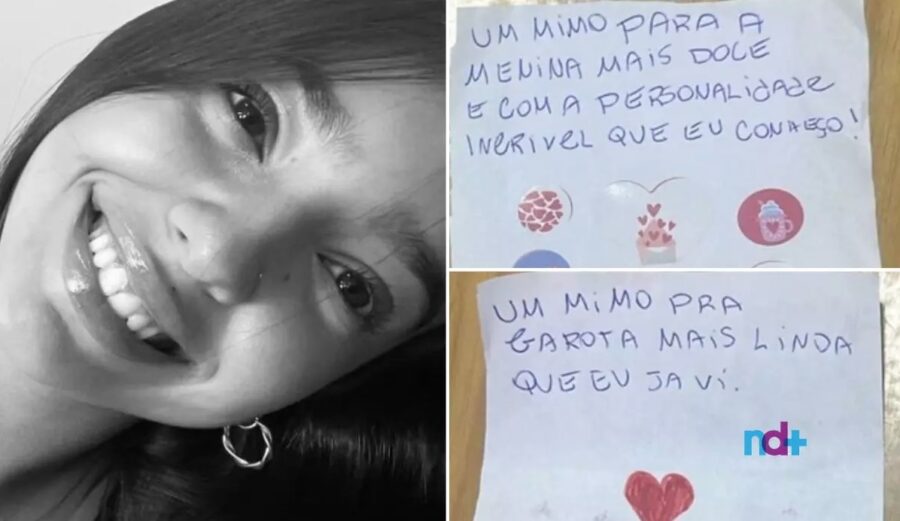 UM MIMO PARA A
MENINA MAIS DOCE
E COM A PERSONALIDADE
INCRIVEL QUE EU CONHEÇO!
UM MIMO PRA
GAROTA MAIS LINDA
QUE EU JA VI.
nd+